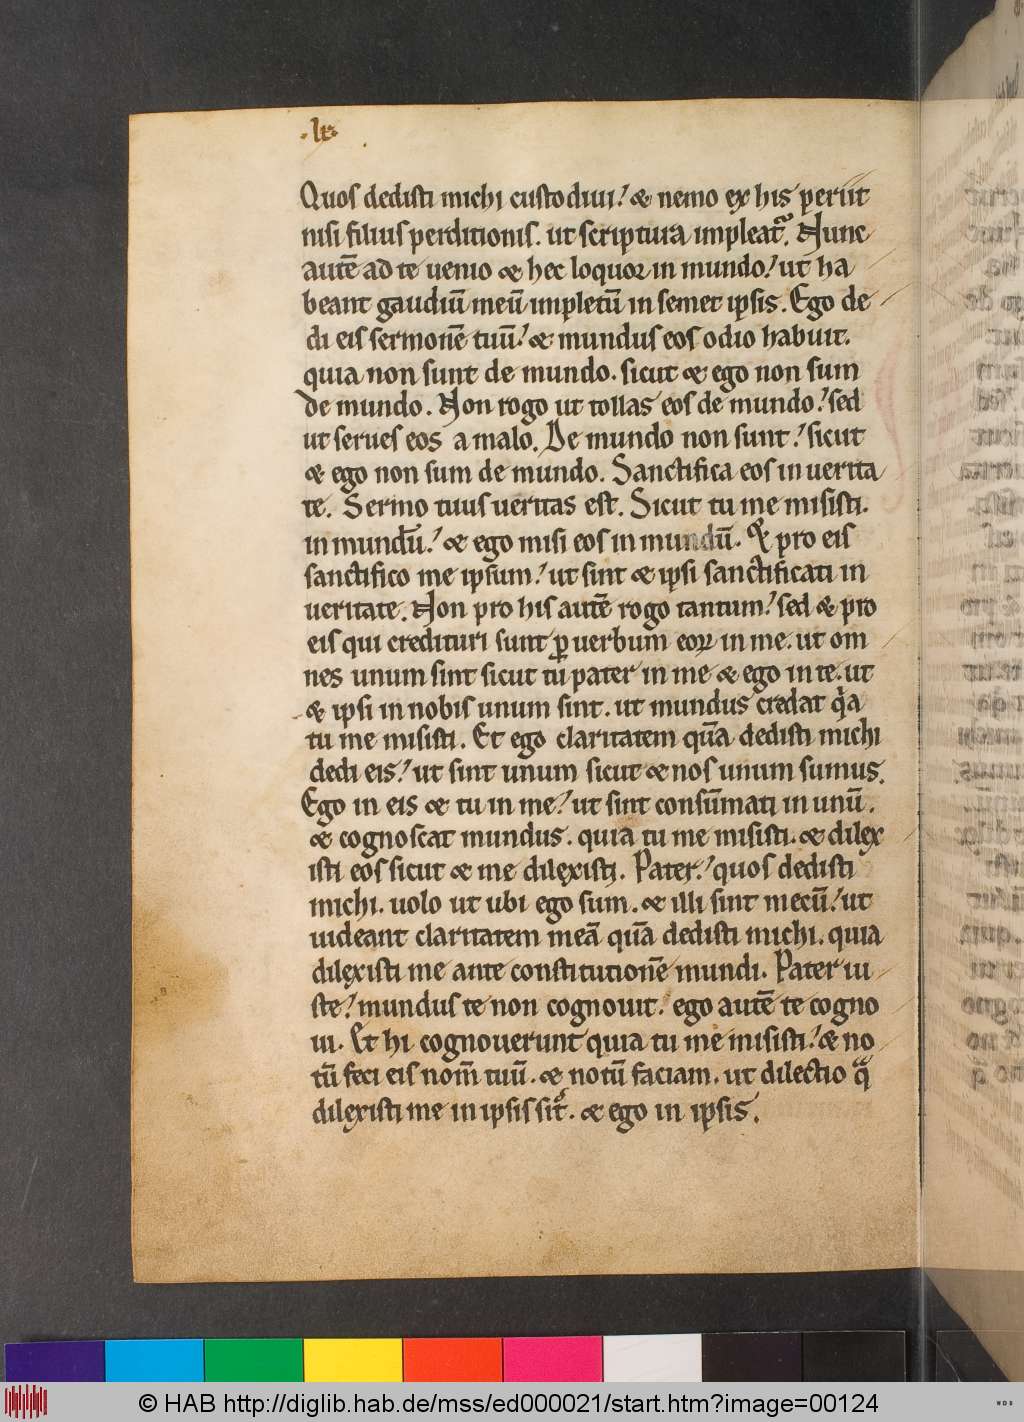 Quos dedisti michi custodiui. & nemo ex his periit
nisi filius perditionis. ut scriptura impleat᷑. Nunc
autē ad te uenio & hec loquor in mundo. ut ha
beant gaudiū meū impletū in semet ipsis. Ego de
di eis sermonē tuū. & mundus eos odio habuit.
quia non sunt de mundo. sicut & ego non sum
de mundo. Non rogo ut tollas eos de mundo. sed
ut serues eos a malo. De mundo non sunt. sicut
& ego non sum de mundo. Sanctifica eos in uerita
te. Sermo tuus ueritas est. Sicut tu me misisti.
in mundū. & ego misi eos in mundū. Et pro eis
sanctifico me ipsum. ut sint & ipsi sanctificati in
ueritate. Non pro his autē rogo tantum. sed & pro
eis qui credituri sunt ꝑ uerbum eoꝝ in me. ut om
nes unum sint sicut tu pater in me & ego in te. ut
& ipsi in nobis unum sint. ut mundus credat qͥa
tu me misisti. Et ego claritatem quā dedisti michi
dedi eis. ut sint unum sicut & nos unum sumus.
Ego in eis & tu in me. ut sint consūmati in unū.
& cognoscat mundus. quia tu me misisti. & dilex
isti eos sicut & me dilexisti. Pater. quos dedisti
michi. uolo ut ubi ego sum. & illi sint mecū. ut
uideant claritatem meā quā dedisti michi. quia
dilexisti me ante constitutionē mundi. Pater iu
ste. mundus te non cognouit. ego autē te cogno
ui. Et hi cognouerunt quia tu me misisti. & no
tū feci eis nom̄ tuū. & notū faciam. ut dilectio qᷓ
dilexisti me in ipsis sit. & ego in ipsis.
© HAB http://diglib.hab.de/mss/ed000021/start.htm?image=00124